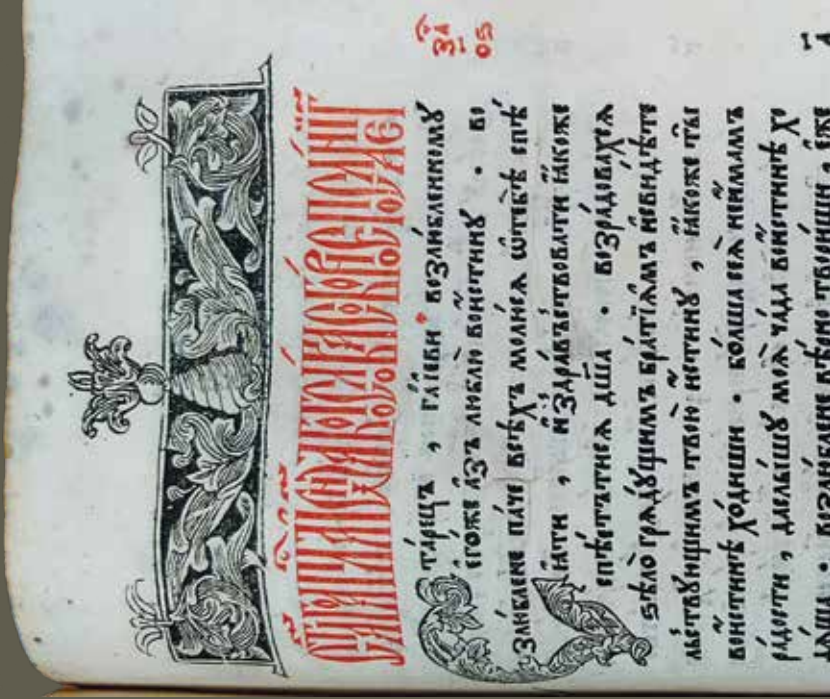 за
ос
Ста́рецъ , га́їеви возлюбленномꙋ
є҆го́же а҆́зъ люблю̀ воистинꙋ . во
злюблене па́че всѣ́хъ молюсѧ ѡ҆тебѣ̀ спѣ
ꙗ҆ти , и҆здра́въствовати ꙗ҆́коже
спѣетътисѧ дш҃а . возра́довахсѧ
ѕѣло̀ грѧдꙋ́щимъ бра́тїꙗмъ и҆свидѣте
льствꙋющимъ твою̀ и҆стинꙋ , ꙗ҆́коже ты̀
воистиннѣ хо́диши . бо́лша сеѧ̀ неи҆мамъ
ра́дости , даслы́шꙋ моѧ̀ ча́да воистиннѣ хо
дѧща . возлюблене вѣ́рно твориши . є҆́же